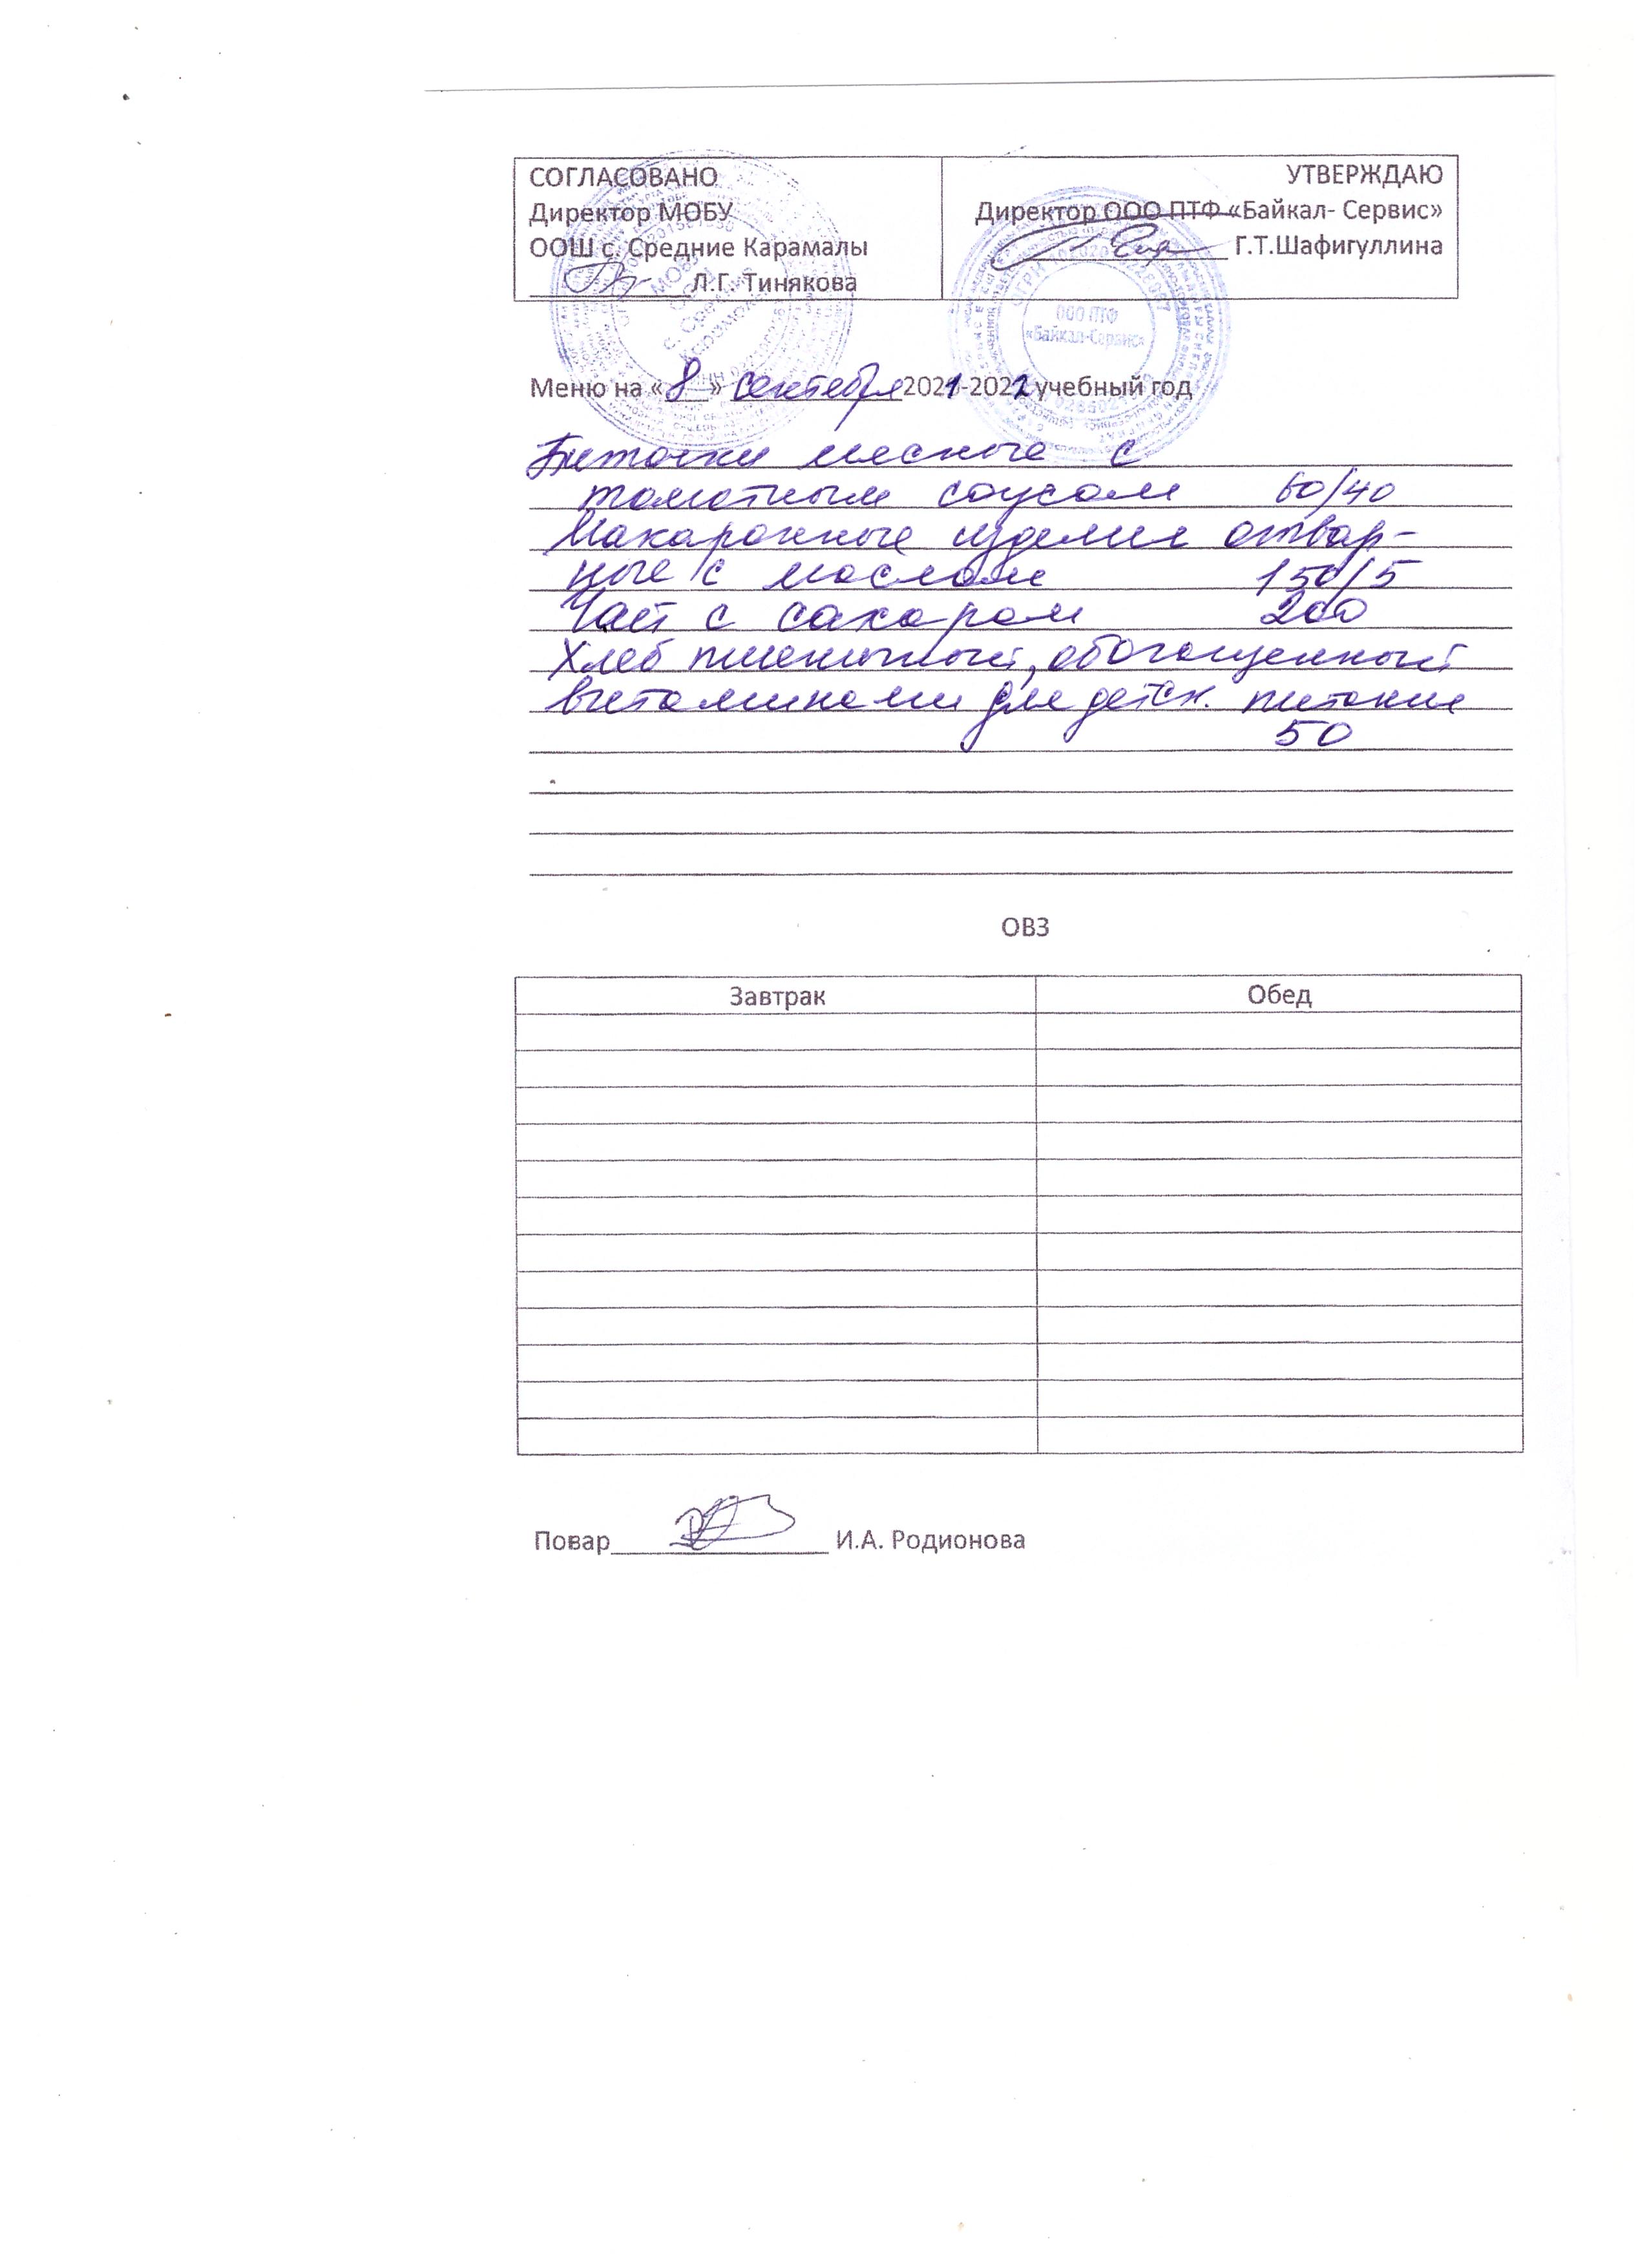 СОГЛАСОВАНО
Директор МОБУ
ООШ с. Средние Карамалы
Л.Г. Тинякова
УТВЕРЖДАЮ
Директор ООО ПТФ «Байкал- Сервис»
Г.Т.Шафигуллина
ООО ПТФ
«Байкал-Сервис»
Меню на «8» сентября 2021-2022 учебный год
Биточки мясные с
томатным соусом 60/40
Макаронные изделия отвар-
ные с маслом 150/5
Чай с сахаром 200
Хлеб пшеничный, обогащенный
витаминами для детск. питания
50
ОВЗ
Завтрак Обед
Повар И.А. Родионова